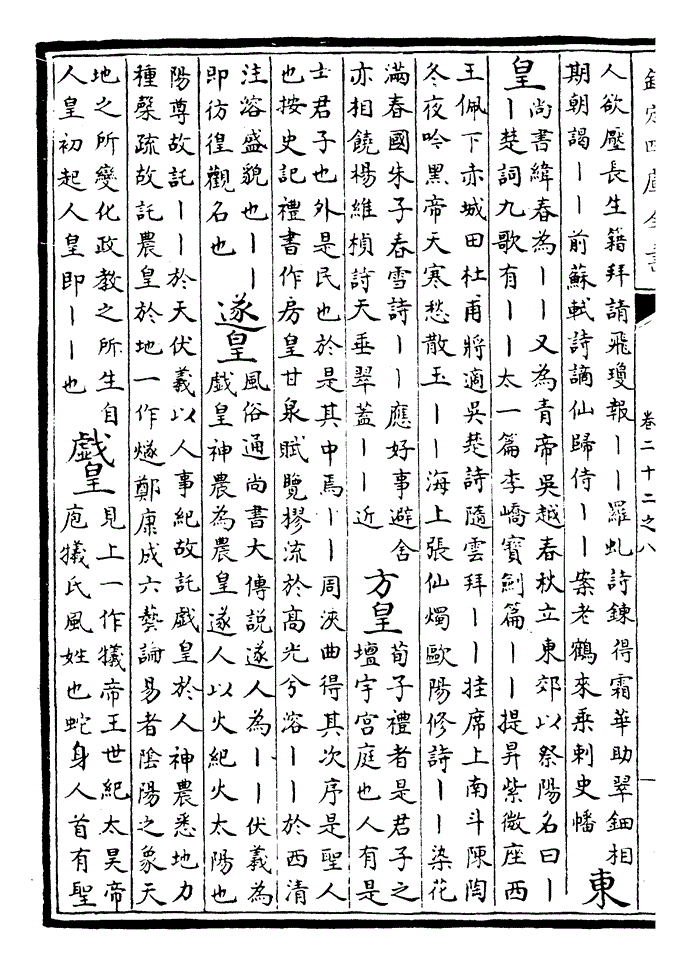 欽定四庫全書
卷二十二之八
人欲壓長生籍拜請飛瓊報丨丨羅虬詩鍊得霜華助翠鈿相
期朝謁丨丨前蘇軾詩謫仙歸侍丨丨案老鶴來乘刺史幡
東
皇
尚書緯春為丨丨又為青帝吳越春秋立東郊以祭陽名曰丨
丨楚詞九歌有丨丨太一篇李嶠寶劍篇丨丨提昇紫微座西
王佩下赤城田杜甫將適吳楚詩隨雲拜丨丨挂席上南斗陳陶
冬夜吟黑帝天寒愁散玉丨丨海上張仙燭歐陽修詩丨丨染花
滿春國朱子春雪詩丨丨應好事避舍
亦相饒楊維楨詩天垂翠蓋丨丨近
方皇
荀子禮者是君子之
壇宇宮庭也人有是
士君子也外是民也於是其中焉丨丨周浹曲得其次序是聖人
也按史記禮書作房皇甘泉賦覽摎流於高光兮溶丨丨於西清
注溶盛貌也丨丨
即彷徨觀名也
遂皇
風俗通尚書大傳說遂人為丨丨伏義為
戲皇神農為農皇遂人以火紀火太陽也
陽尊故託丨丨於天伏義以人事紀故託戲皇於人神農悉地力
種穀疏故託農皇於地一作燧鄭康成六藝論易者陰陽之象天
地之所變化政教之所生自
人皇初起人皇即丨丨也
戲皇
見上一作犧帝王世紀太昊帝
庖犧氏風姓也蛇身人首有聖